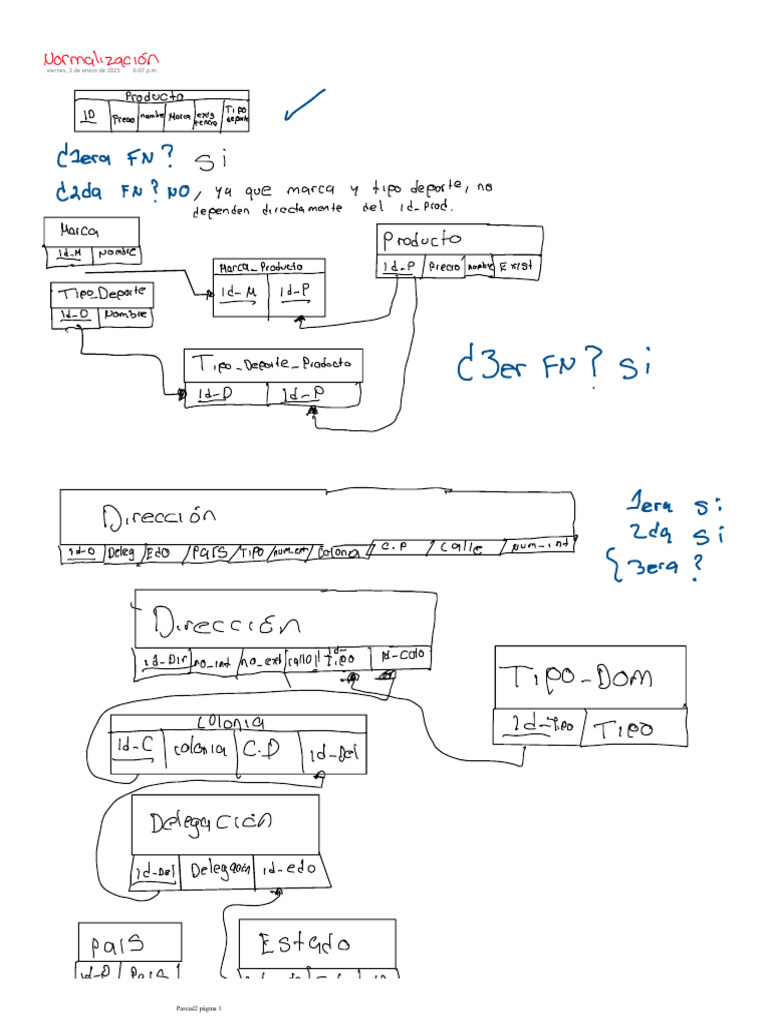 Normalización
viernes, 3 de enero de 2025 6:07 p.m.
Producto
ID Precio nombre Marca exis tencia Tipo deporte
¿1era FN? Si
¿2da FN? NO, ya que marca y tipo deporte, no
dependen directamente del id_Prod.
Marca
Id_M Nombre
Producto
Id_P Precio nombre Exist
Marca_Producto
Id_M Id_P
Tipo_Deporte
Id_D Nombre
Tipo_Deporte_Producto
Id_D Id_P
¿3er FN? Si
Dirección
Id_D Deleg Edo País Tipo num_ext Colonia C.P Calle num_int
1era Si
2da Si
3era ?
Dirección
id_Dir no_int no_ext calle id-tipo id-colo
Tipo_Dom
Id_Tipo Tipo
Colonia
Id_C colonia C.P id_Del
Delegación
id_Del Delegación id_edo
País
id_P País
Estado